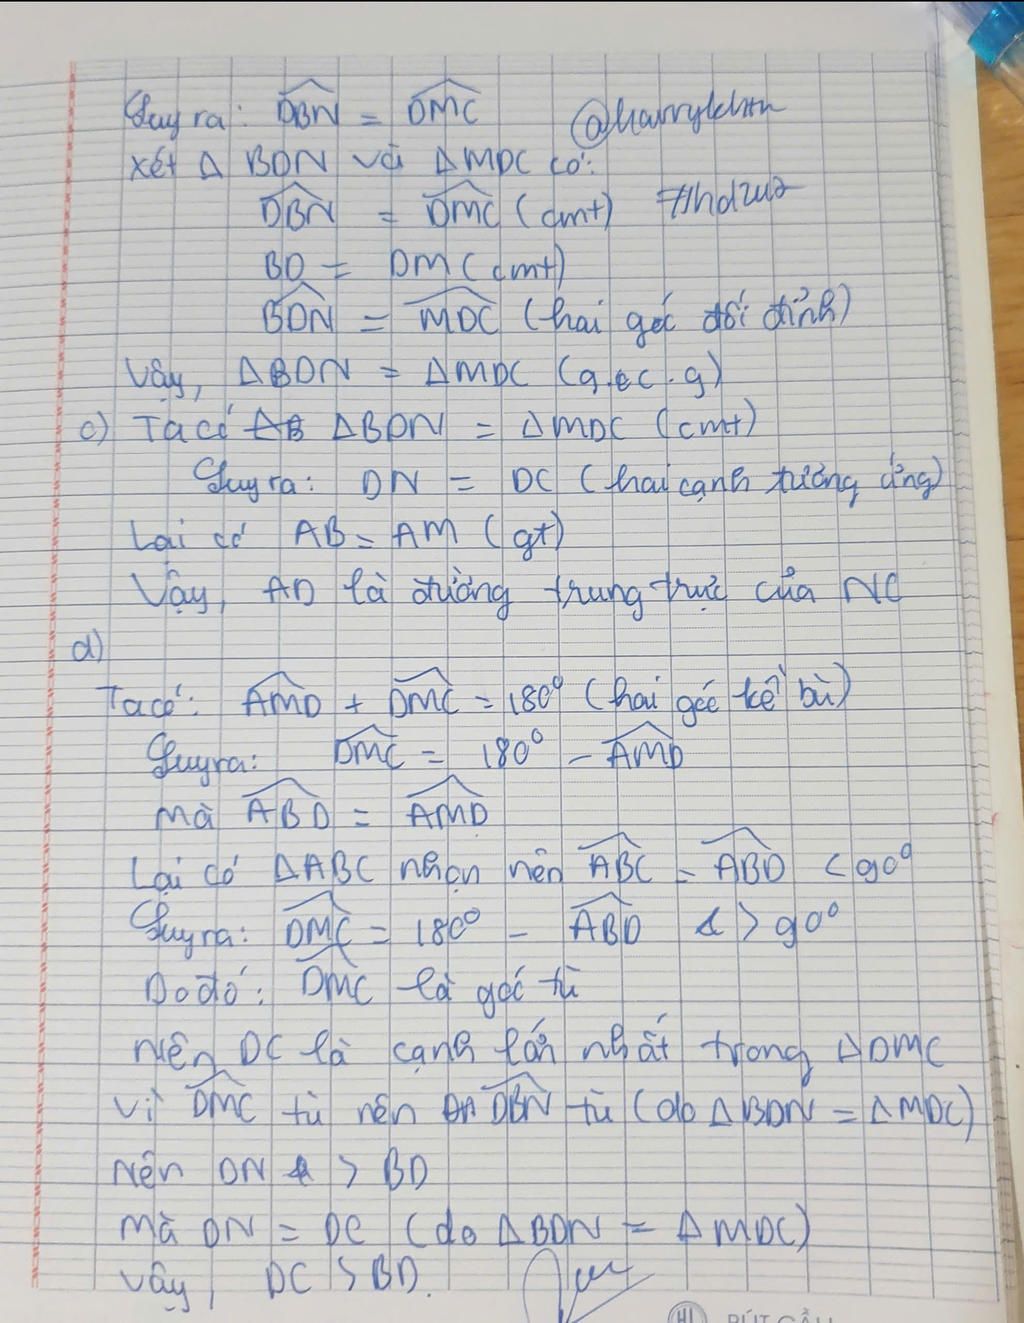 Suy ra: DBN = DMC @harrylchtn
xét Δ BDN và ΔMDC có:
DBN = DMC (cmt)
BD = DM (cmt)
BDN = MDC (hai góc đối đỉnh)
Vậy, ΔBDN = ΔMDC (g.c.g)
c) Ta có ΔBDN = ΔMDC (cmt)
Suy ra: DN = DC (hai cạnh tương ứng)
Lại có AB = AM (gt)
Vậy, AD là đường trung trực của NC
d)
Ta có: AMD + DMC = 180° (hai góc kề bù)
Suy ra: DMC = 180° - AMD
Mà ABD = AMD
Lại có ΔABC nhọn nên ABC = ABD < 90°
Suy ra: DMC = 180° - ABD > 90°
Do đó: DMC là góc tù
Nên DC là cạnh lớn nhất trong ΔDMC
Vì DMC tù nên DBN tù (do ΔBDN = ΔMDC)
Nên DN > BD
Mà DN = DC (do ΔBDN = ΔMDC)
Vậy, DC > BD.